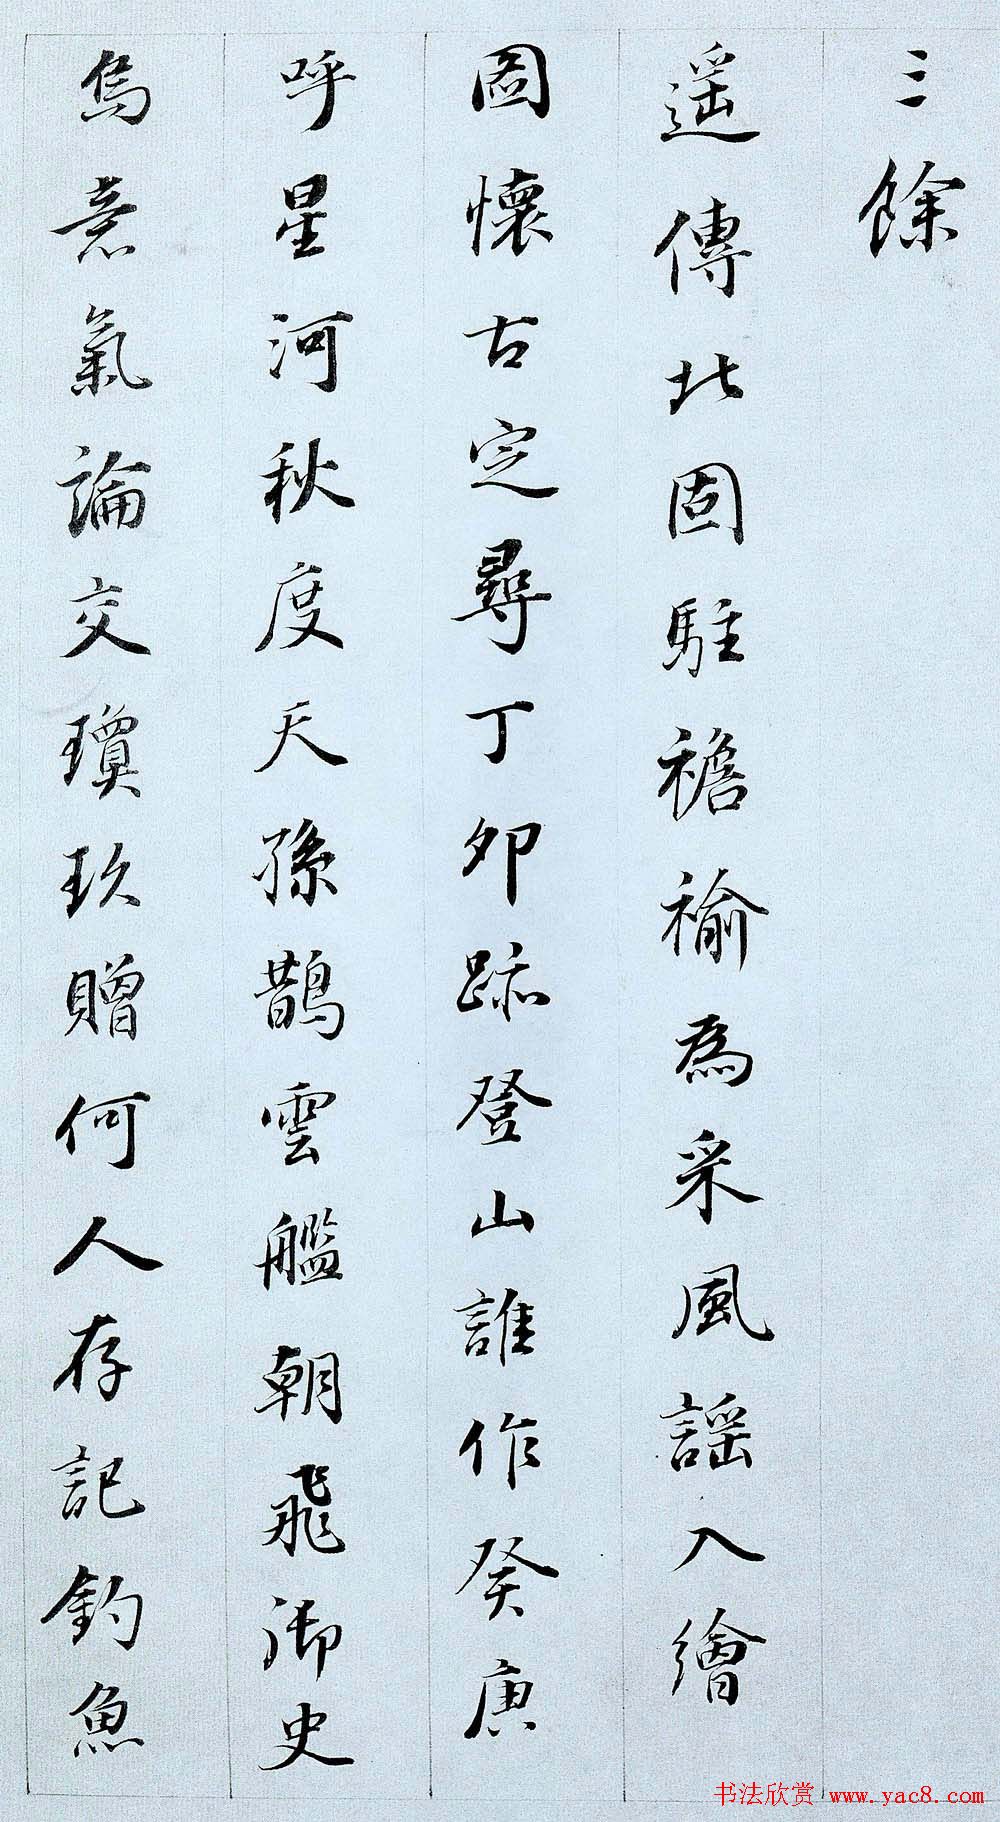 三餘
遥傳北固駐襜褕為采風謡入繪
圖懷古定尋丁卯跡登山誰作癸庚
呼星河秋度天孫鵲雲艦朝飛御史
烏意氣論交瓊玖贈何人存記釣魚
书法欣赏 www.yac8.com